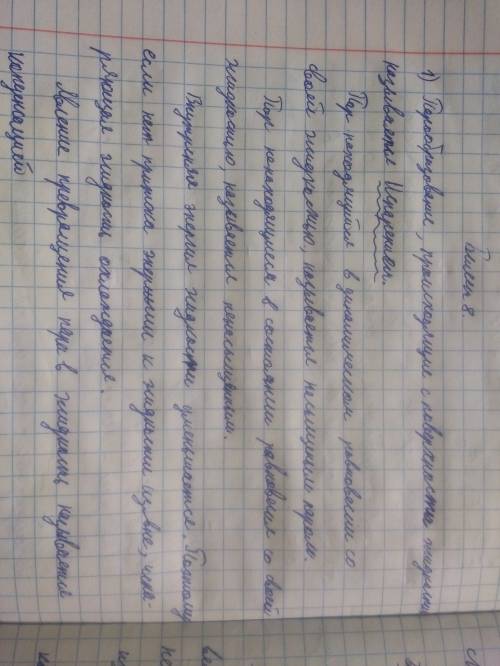 Билет 8.
1) Парообразование, происходящие с поверхности жидкости
называется Испарением.
Пар находящийся в динамическом равновесии со
своей жидкостью, называется насыщенным паром.
Пар не находящиеся в состоянии равновесия со своей
жидкостью, называется ненасыщеным.
Внутренняя энергия жидкости уменьшается. Поэтому
если нет притока энергии к жидкости извне, испа-
ряющая жидкость охлаждается.
Явление превращения пара в жидкость называется